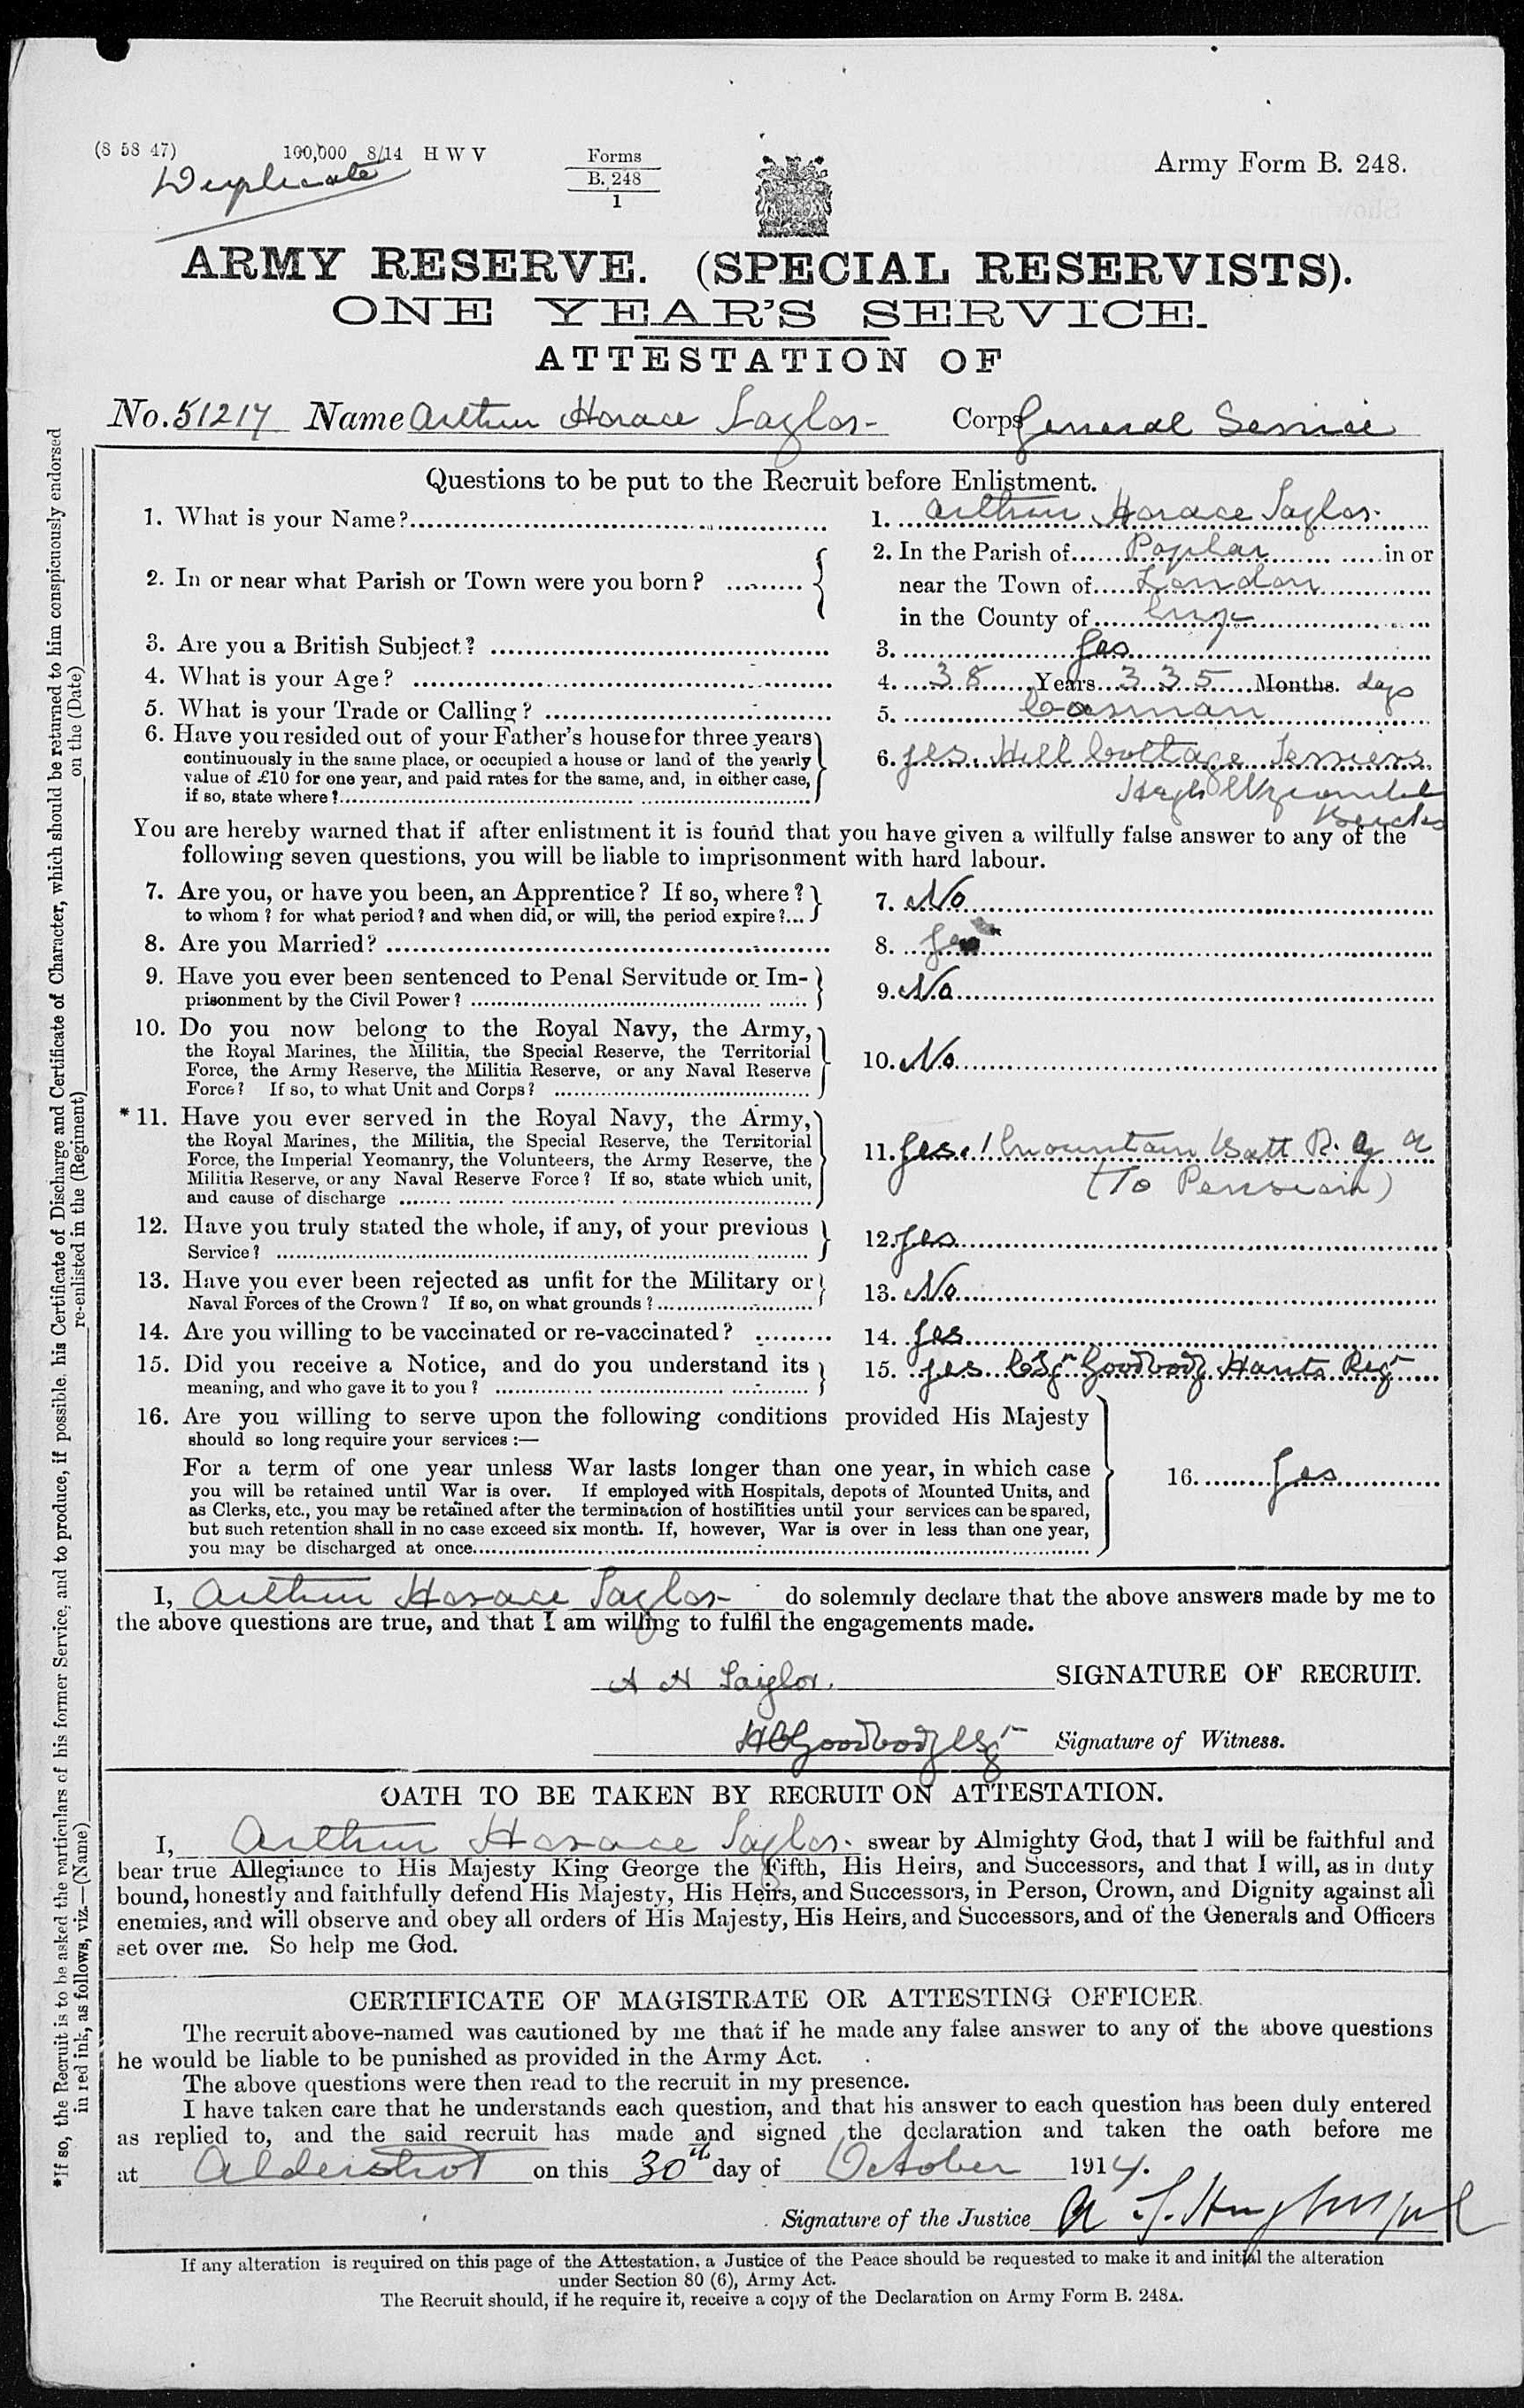 (8 58 47) 100,000 8/14 H W V Forms
B. 248
1
Army Form B. 248.
Duplicate
ARMY RESERVE. (SPECIAL RESERVISTS).
ONE YEAR'S SERVICE.
ATTESTATION OF
No. 51217 Name Arthur Horace Taylor Corps General Service
Questions to be put to the Recruit before Enlistment.
1. What is your Name? 1. Arthur Horace Taylor
2. In or near what Parish or Town were you born? 2. In the Parish of Poplar in or
near the Town of London
in the County of
3. Are you a British Subject? 3. Yes
4. What is your Age? 4. 38 Years 335 Months. days
5. What is your Trade or Calling? 5. Carman
6. Have you resided out of your Father's house for three years
continuously in the same place, or occupied a house or land of the yearly
value of £10 for one year, and paid rates for the same, and, in either case,
if so, state where?
6. Yes. Hill Cottage Terriers.
High Wycombe
Bucks
You are hereby warned that if after enlistment it is found that you have given a wilfully false answer to any of the
following seven questions, you will be liable to imprisonment with hard labour.
7. Are you, or have you been, an Apprentice? If so, where?
to whom? for what period? and when did, or will, the period expire?...
7. No
8. Are you Married? 8. Yes
9. Have you ever been sentenced to Penal Servitude or Im-
prisonment by the Civil Power?
9. No
10. Do you now belong to the Royal Navy, the Army,
the Royal Marines, the Militia, the Special Reserve, the Territorial
Force, the Army Reserve, the Militia Reserve, or any Naval Reserve
Force? If so, to what Unit and Corps?
10. No
*11. Have you ever served in the Royal Navy, the Army,
the Royal Marines, the Militia, the Special Reserve, the Territorial
Force, the Imperial Yeomanry, the Volunteers, the Army Reserve, the
Militia Reserve, or any Naval Reserve Force? If so, state which unit,
and cause of discharge
11. Yes. 1 Mountain Batt R. G. A
(To Pension)
12. Have you truly stated the whole, if any, of your previous
Service?
12. Yes
13. Have you ever been rejected as unfit for the Military or
Naval Forces of the Crown? If so, on what grounds?
13. No
14. Are you willing to be vaccinated or re-vaccinated? 14. Yes
15. Did you receive a Notice, and do you understand its
meaning, and who gave it to you?
15. Yes Goodbody Hants Regt
16. Are you willing to serve upon the following conditions provided His Majesty
should so long require your services :—
For a term of one year unless War lasts longer than one year, in which case
you will be retained until War is over. If employed with Hospitals, depots of Mounted Units, and
as Clerks, etc., you may be retained after the termination of hostilities until your services can be spared,
but such retention shall in no case exceed six month. If, however, War is over in less than one year,
you may be discharged at once
16. Yes
I, Arthur Horace Taylor do solemnly declare that the above answers made by me to
the above questions are true, and that I am willing to fulfil the engagements made.
A H Taylor. SIGNATURE OF RECRUIT.
Goodbody Signature of Witness.
OATH TO BE TAKEN BY RECRUIT ON ATTESTATION.
I, Arthur Horace Taylor swear by Almighty God, that I will be faithful and
bear true Allegiance to His Majesty King George the Fifth, His Heirs, and Successors, and that I will, as in duty
bound, honestly and faithfully defend His Majesty, His Heirs, and Successors, in Person, Crown, and Dignity against all
enemies, and will observe and obey all orders of His Majesty, His Heirs, and Successors, and of the Generals and Officers
set over me. So help me God.
CERTIFICATE OF MAGISTRATE OR ATTESTING OFFICER.
The recruit above-named was cautioned by me that if he made any false answer to any of the above questions
he would be liable to be punished as provided in the Army Act.
The above questions were then read to the recruit in my presence.
I have taken care that he understands each question, and that his answer to each question has been duly entered
as replied to, and the said recruit has made and signed the declaration and taken the oath before me
at Aldershot on this 30th day of October 1914.
Signature of the Justice
If any alteration is required on this page of the Attestation, a Justice of the Peace should be requested to make it and initial the alteration
under Section 80 (6), Army Act.
The Recruit should, if he require it, receive a copy of the Declaration on Army Form B. 248A.
*If so, the Recruit is to be asked the particulars of his former Service, and to produce, if possible, his Certificate of Discharge and Certificate of Character, which should be returned to him conspicuously endorsed
in red ink, as follows, viz.—(Name) re-enlisted in the (Regiment) on the (Date)